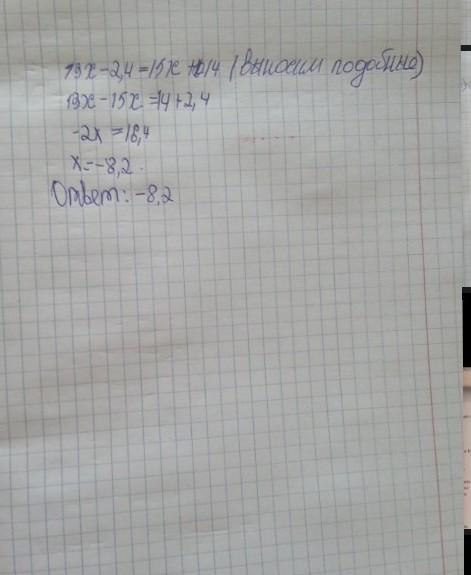 13x-2,4=15x+14 (выносим подобные)
13x-15x=14+2,4
-2x=16,4
x=-8,2.
Ответ: -8,2